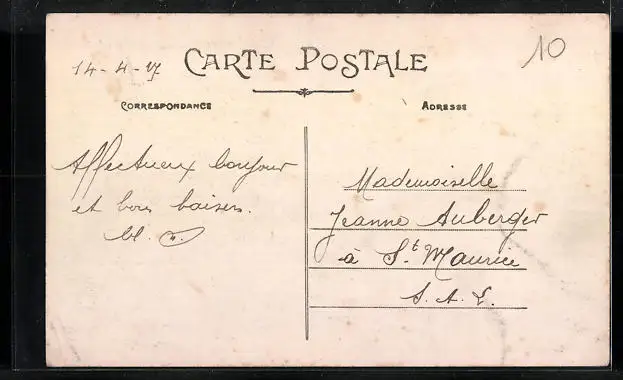 14-4-17
CARTE POSTALE
10
CORRESPONDANCE
ADRESSE
Affectueux bonjour
et bons baisers.
M.
Mademoiselle
Jeanne Auberger
à St Maurice
S. A. L.